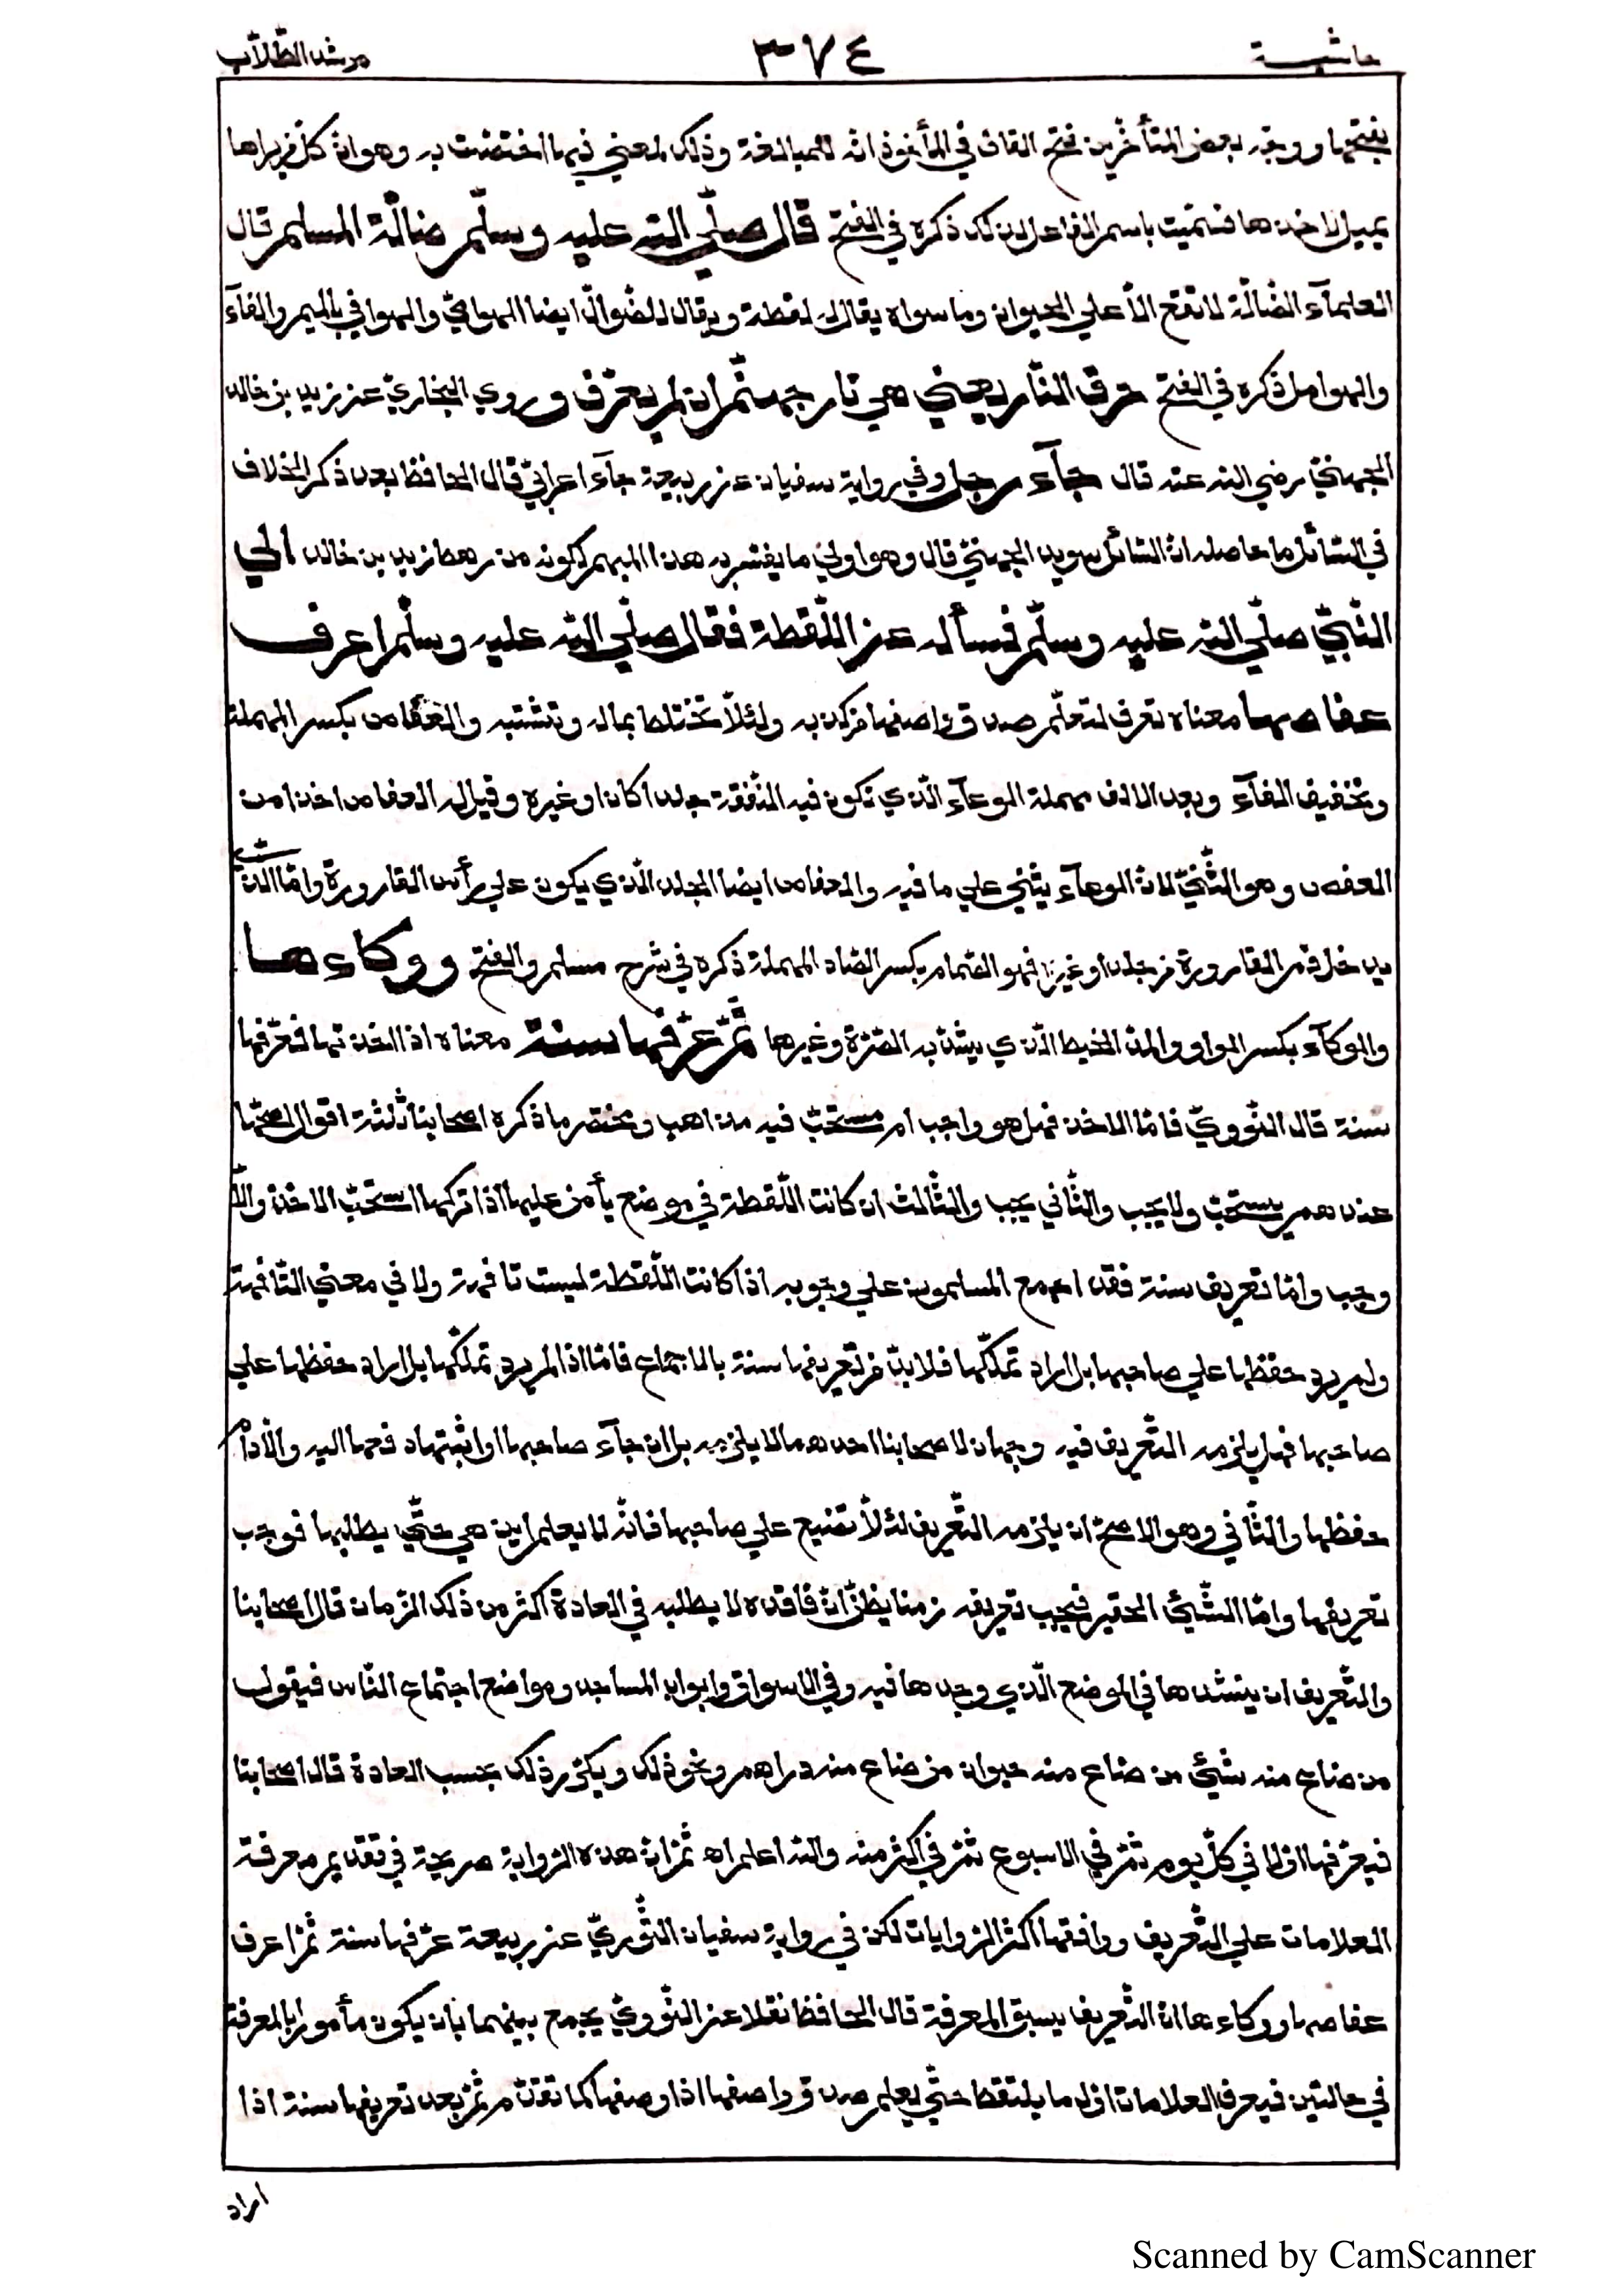 حاشيـــة ٣٧٤ مرشد الطّلّاب
بفتحها ووجّه بعض المتأخّرين فتح القاف في المأخوذ انه للمبالغة وذلك لمعني فيها اختصّت به وهو انّ كلّ من يراها
يميل لاخذها فسمّيت باسم الفاعل لذلك ذكره في الفتح قال صلّي اللّه عليه وسلّم ضالّة المسلم قال
العلمآء الضّالّة لا تقع الّا علي الحيوان وما سواه يقال له لقطة ويقال للضّوالّ ايضا الهوامي والهوافي بالميم والفآء
والهوامل ذكره في الفتح حرق النّار يعني هي نار جهنّم ان لم يعرّف وروي البخاريّ عن زيد بن خالد
الجهنيّ رضي اللّه عنه قال جآء رجل وفي رواية سفيان عن ربيعة جآء اعرابيّ قال الحافظ بعد ذكر الخلاف
في السّائل ما حاصله انّ السّائل سويد الجهنيّ قال وهو اولي ما يفسّر به هذا المبهم لكونه من رهط زيد بن خالد الي
النّبيّ صلّي اللّه عليه وسلّم فسأله عن اللّقطة فقال صلّي اللّه عليه وسلّم اعرف
عفاصها معناه تعرف لتعلّم صدق واصفها من كذبه ولئلّا تختلط بماله وتشتبه والعفاص بكسر المهملة
وتخفيف الفآء وبعد الالف مهملة الوعآء الّذي تكون فيه النّفقة جلدا كان او غيره وقيل له العفاص اخذا من
العفص وهو الثّنيّ لانّ الوعآء يثني علي ما فيه والعفاص ايضا الجلد الّذي يكون علي رأس القارورة وامّا الّذي
يدخل فم القارورة من جلد او غيره فهو الصّمام بكسر الصّاد المهملة ذكره في شرح مسلم والفتح ووكاءها
والوكآء بكسر الواو والمدّ الخيط الّذي يشدّ به الصّرّة وغيرها ثمّ عرّفها سنة معناه اذا اخذتها فعرّفها
سنة قال النّوويّ فامّا الاخذ فهل هو واجب ام مستحبّ فيه مذاهب ومختصر ما ذكره اصحابنا ثلثة اقوال اصحّها
عندهم يستحبّ ولا يجب والثّاني يجب والثّالث ان كانت اللّقطة في موضع يأمن عليها اذا تركها استحبّ الاخذ والّا
وجب وامّا تعريف سنة فقد اجمع المسلمون علي وجوبه اذا كانت اللّقطة ليست تافهة ولا في معني التّافهة
ولم يرد حفظها علي صاحبها بل اراد تملّكها فلا بدّ من تعريفها سنة بالاجماع فامّا اذا لم يرد تملّكها بل اراد حفظها علي
صاحبها فهل يلزمه التّعريف فيه وجهان لاصحابنا احدهما لا يلزمه بل ان جآء صاحبها او اثبتها دفعها اليه والّا دام
حفظها والثّاني وهو الاصحّ ان يلزمه التّعريف لئلّا تضيع علي صاحبها فانّه لا يعلم اين هي حتّي يطلبها فوجب
تعريفها وامّا الشّيئ الحقير فيجب تعريفه زمنا يظنّ انّ فاقده لا يطلبه في العادة اكثر من ذلك الزّمان قال اصحابنا
والتّعريف ان ينشدها في الموضع الّذي وجدها فيه وفي الاسواق وابواب المساجد ومواضع اجتماع النّاس فيقول
من ضاع منه شيئ من ضاع منه حيوان من ضاع منه دراهم ونحو ذلك ويكرّر ذلك بحسب العادة قال اصحابنا
فيعرّفها اوّلا في كلّ يوم ثمّ في الاسبوع ثمّ في اكثر منه واللّه اعلم اه ثمّ انّ هذه الرّواية صريحة في تقديم معرفة
العلامات علي التّعريف ووافقها اكثر الرّوايات لكن في رواية سفيان الثّوريّ عن ربيعة عرّفها سنة ثمّ اعرف
عفاصها ووكاءها انّ التّعريف يسبق المعرفة قال الحافظ نقلا عن النّوويّ يجمع بينهما بان يكون مأمورا بالمعرفة
في حالتين فيعرف العلامات اوّل ما يلتقط حتّي يعلم صدق واصفها اذا وصفها كما تقدّم ثمّ بعد تعريفها سنة اذا
اراد
Scanned by CamScanner